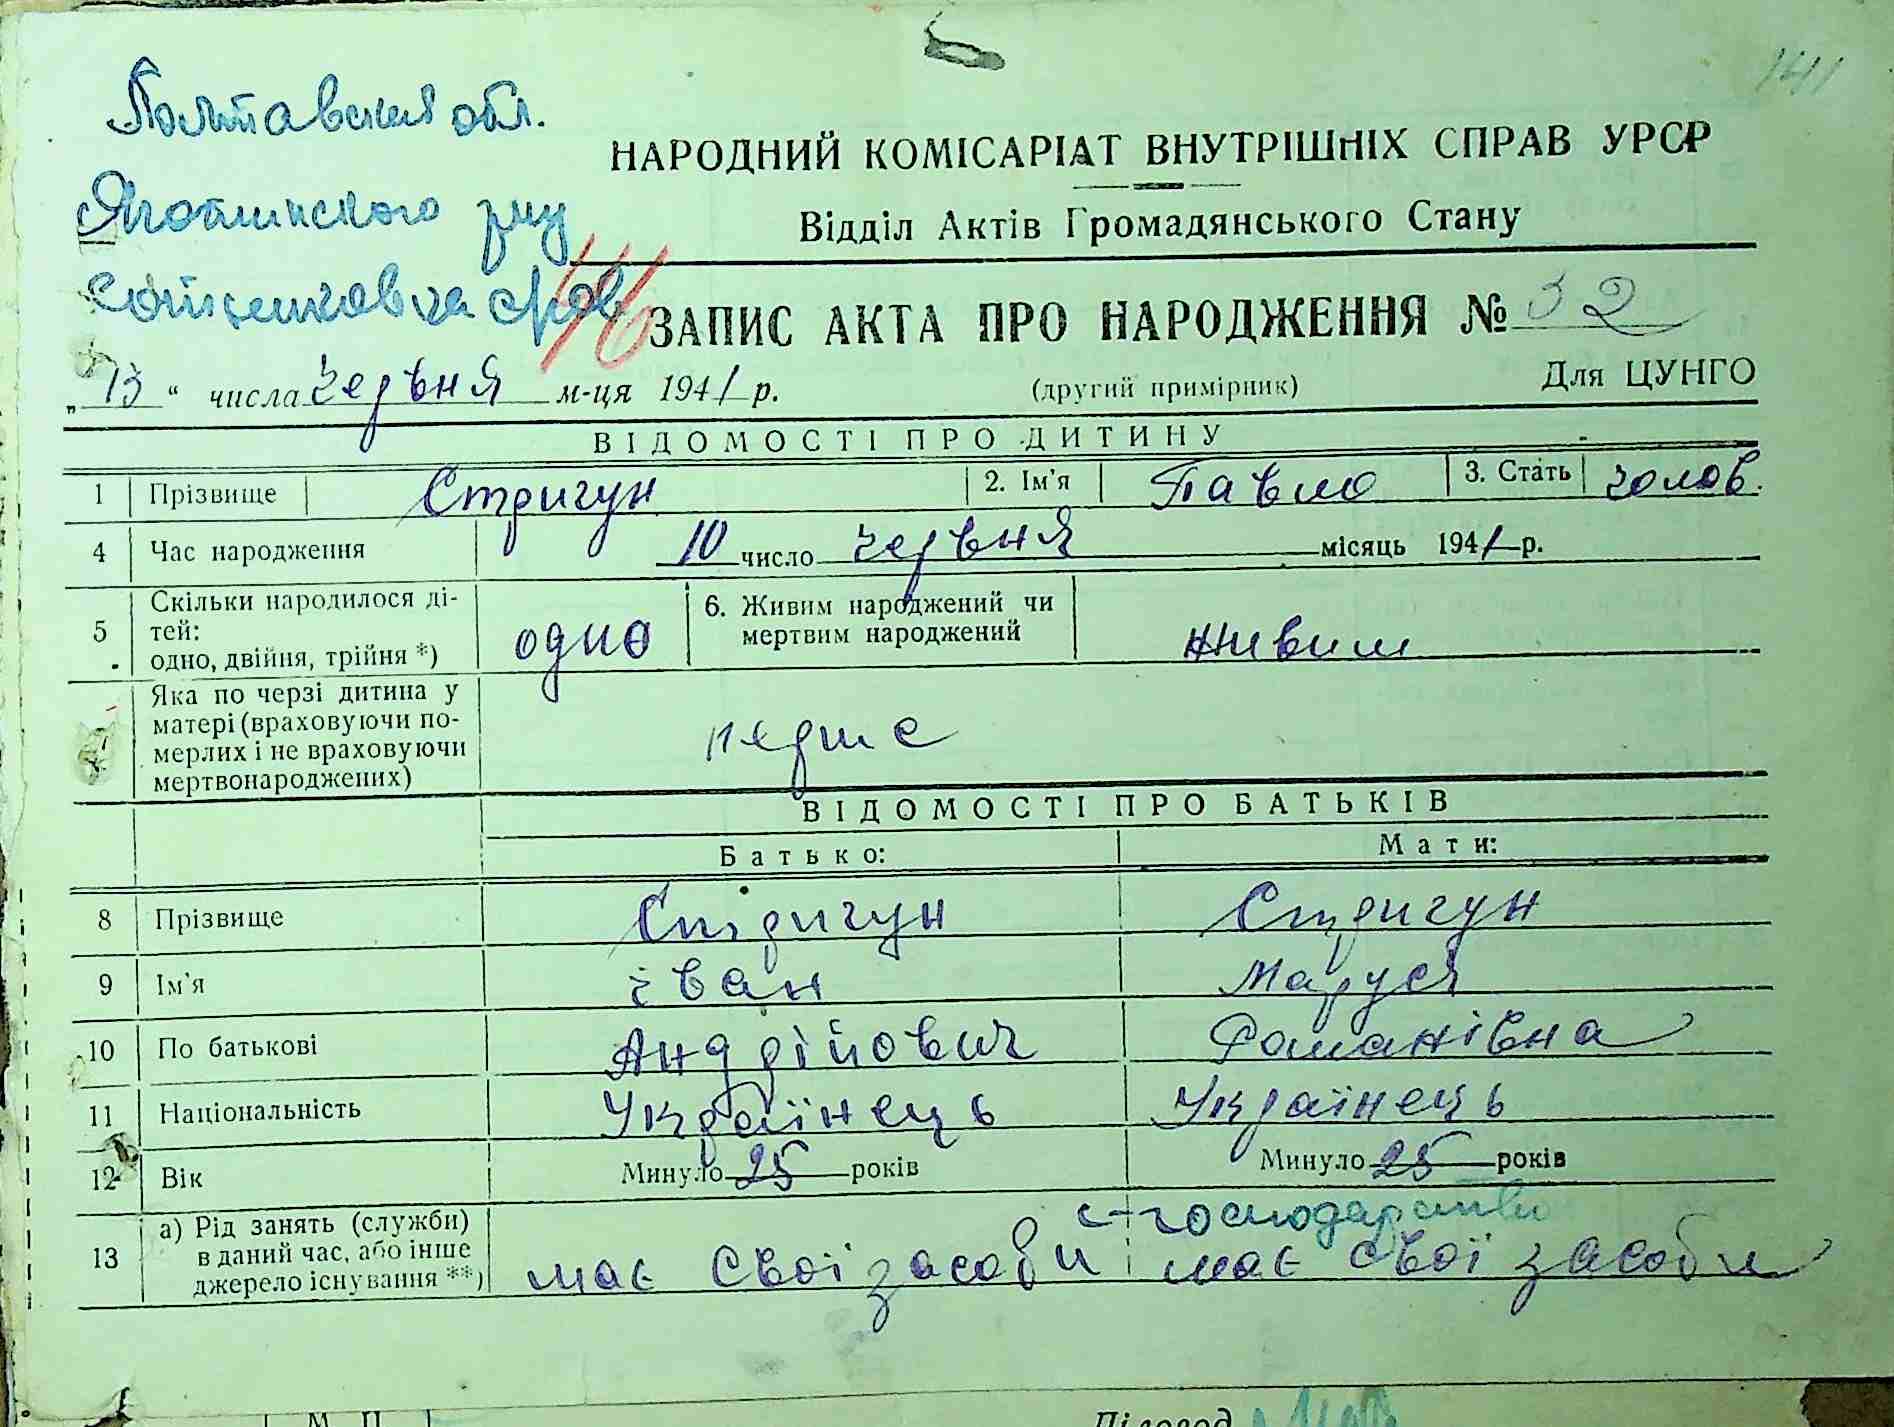 141
Полтавская обл.
НАРОДНИЙ КОМІСАРІАТ ВНУТРІШНІХ СПРАВ УРСР
Яготинского рну
Відділ Актів Громадянського Стану
116
ЗАПИС АКТА ПРО НАРОДЖЕННЯ № 32
„ 13 “ числа червня м-ця 1941 р. (другий примірник) Для ЦУНГО
ВІДОМОСТІ ПРО ДИТИНУ
1 Прізвище Стригун 2. Ім'я Павло 3. Стать чолов.
4 Час народження 10 число червня місяць 1941 р.
5 Скільки народилося ді-
тей:
одно, двійня, трійня *) одно 6. Живим народжений чи
мертвим народжений живим
Яка по черзі дитина у
матері (враховуючи по-
мерлих і не враховуючи
мертвонароджених) перше
ВІДОМОСТІ ПРО БАТЬКІВ
Батько: Мати:
8 Прізвище Стригун Стригун
9 Ім'я іван Маруся
10 По батькові Андрійович Романівна
11 Національність Українець Українець
12 Вік Минуло 25 років Минуло 25 років
с-господарство
13 а) Рід занять (служби)
в даний час, або інше
джерело існування **) має свої засоби має свої засоби
М П